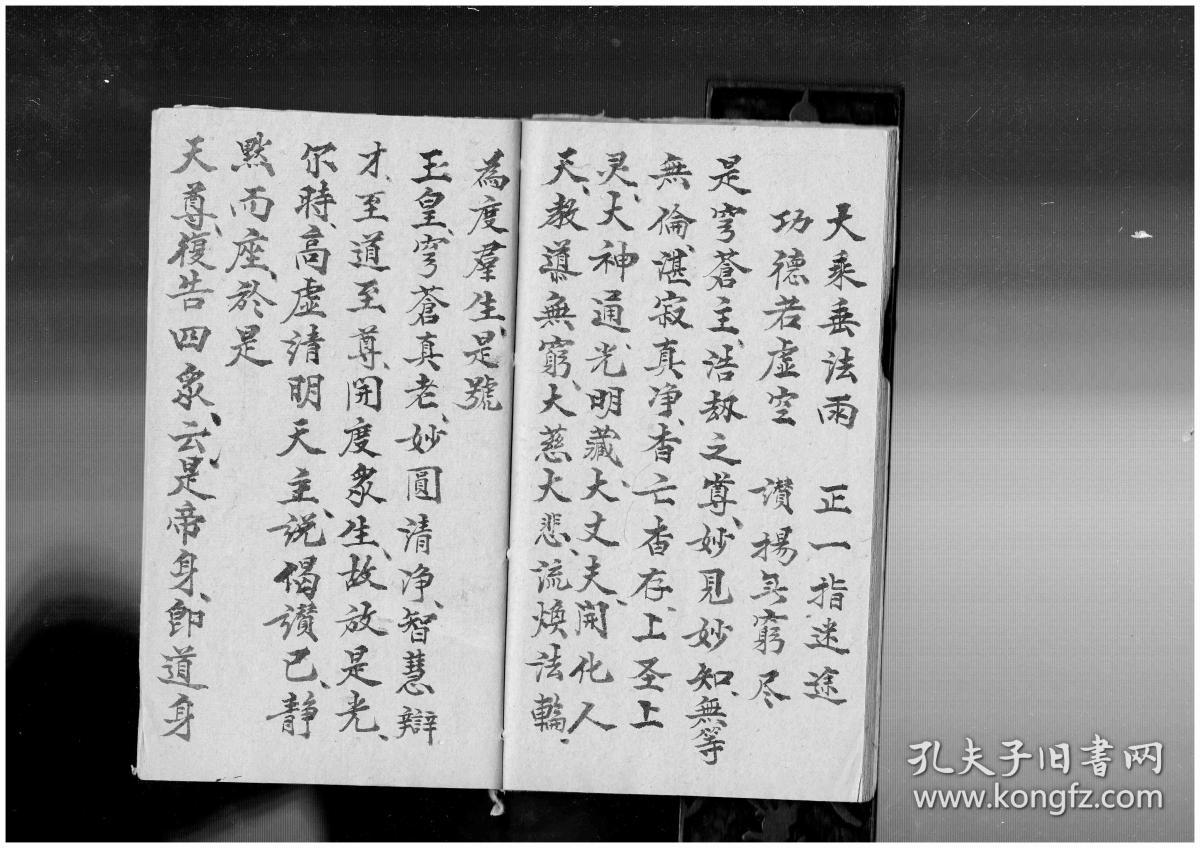 大乘垂法雨　正一指迷途
功德若虛空　讃揚無窮尽
是穹蒼主、浩劫之尊、妙見妙知、無等
無倫、湛寂真净、杳亡杳存、上圣上
灵、大神通、光明藏、大丈夫、開化人
天、教導無窮、大慈大悲、流煥法輪、
為度羣生、是號
玉皇、穹蒼真老、妙圓清净、智慧辯
才、至道至尊、開度衆生、故放是光、
尔時、高虚清明天主、説偈讃已、静
黙而座、於是
天尊、復告四衆、云、是帝身、即道身
孔夫子旧书网
www.kongfz.com